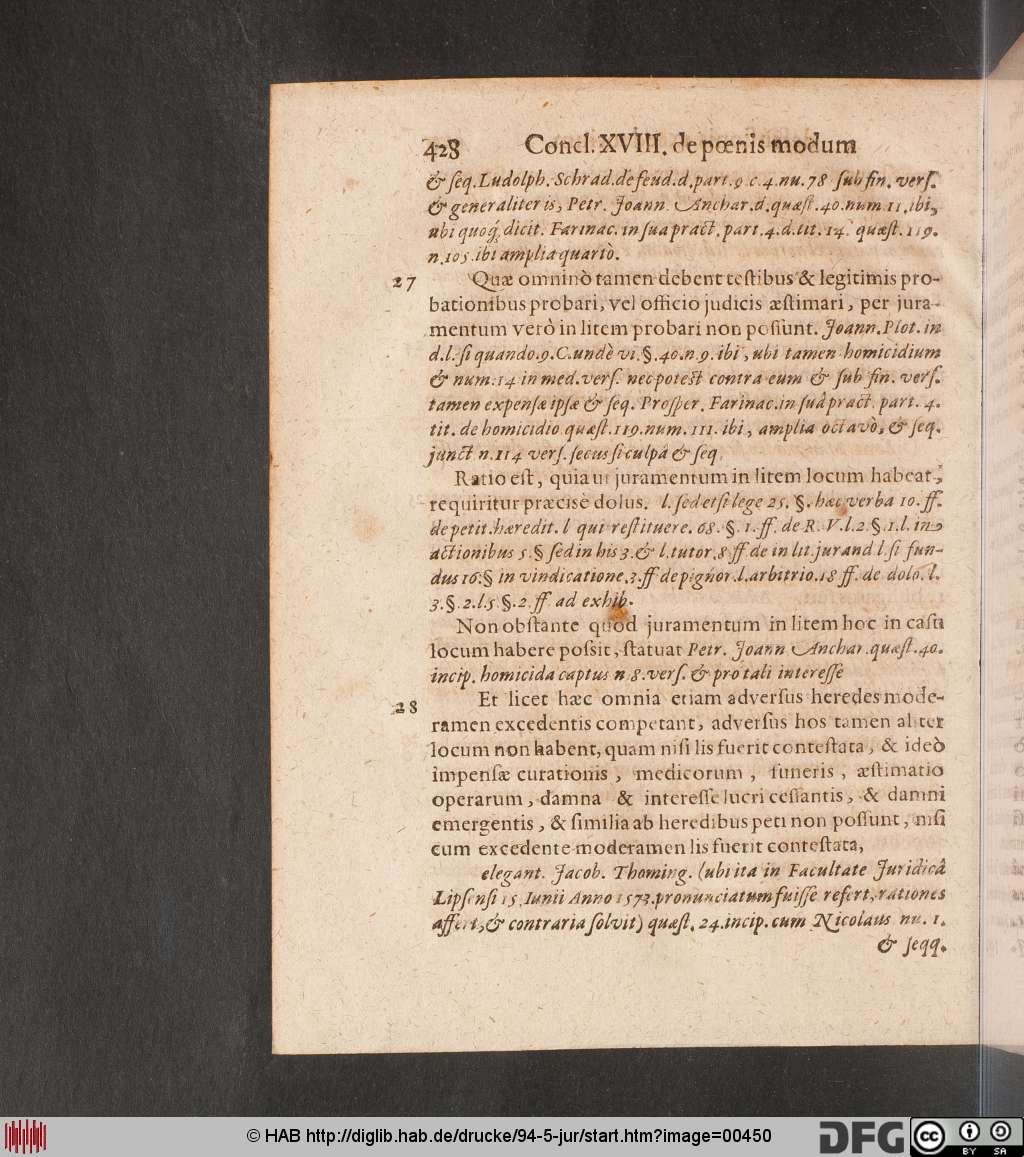 428 Concl. XVIII. de pœnis modum
& ſeq. Ludolph. Schrad. de feud. d. part. 9 c. 4. nu. 78 ſub fin. verſ.
& generaliter is, Petr. Joann. Anchar. d. quæſt. 40. num. 11. ibi,
ubi quoq́; dicit. Farinac. in ſua pract. part. 4. d. tit. 14. quæſt. 119.
n. 105. ibi amplia quartò.
27 Quæ omninò tamen debent teſtibus & legitimis pro-
bationibus probari, vel officio judicis æſtimari, per jura-
mentum verò in litem probari non poſſunt. Joann. Plot. in
d. l. ſi quando. 9. C. undè vi. §. 40. n. 9. ibi, ubi tamen homicidium
& num. 14 in med. verſ. nec poteſt contra eum & ſub fin. verſ.
tamen expenſæ ipſæ & ſeq. Proſper. Farinac. in ſuâ pract. part. 4.
tit. de homicidio quæſt. 119. num. 111. ibi, amplia octavò, & ſeq.
junct n. 114 verſ. ſecus ſi culpâ & ſeq.
Ratio eſt, quia ut juramentum in litem locum habeat,
requiritur præcisè dolus. l. ſed etſi lege 25. §. hæc verba 10. ff.
de petit. hæredit. l qui reſtituere. 68. §. 1. ff. de R. V. l. 2. §. 1. l. in
actionibus 5. § ſed in his 3. & l. tutor. 8. ff de in lit. jurand l. ſi fun-
dus 16. § in vindicatione. 3. ff de pignor. l. arbitrio. 18 ff. de dolo. l.
3. §. 2. l. 5 §. 2. ff ad exhib.
Non obſtante quod juramentum in litem hoc in caſu
locum habere poſſit, ſtatuat Petr. Joann Anchar. quæſt. 40.
incip. homicida captus n 8. verſ. & pro tali intereſſe
28 Et licet hæc omnia etiam adverſus heredes mode-
ramen excedentis competant, adverſus hos tamen aliter
locum non habent, quam niſi lis fuerit conteſtata, & ideò
impenſæ curationis, medicorum, funeris, æſtimatio
operarum, damna & intereſſe lucri ceſſantis, & damni
emergentis, & ſimilia ab heredibus peti non poſſunt, niſi
cum excedente moderamen lis fuerit conteſtata,
elegant. Jacob. Thoming. (ubi ita in Facultate Juridicâ
Lipſenſi 15. Iunii Anno 1573. pronunciatum fuiſſe refert, rationes
affert, & contraria ſolvit) quæſt. 24. incip. cum Nicolaus nu. 1.
& ſeqq.
© HAB http://diglib.hab.de/drucke/94-5-jur/start.htm?image=00450
DFG cc BY SA